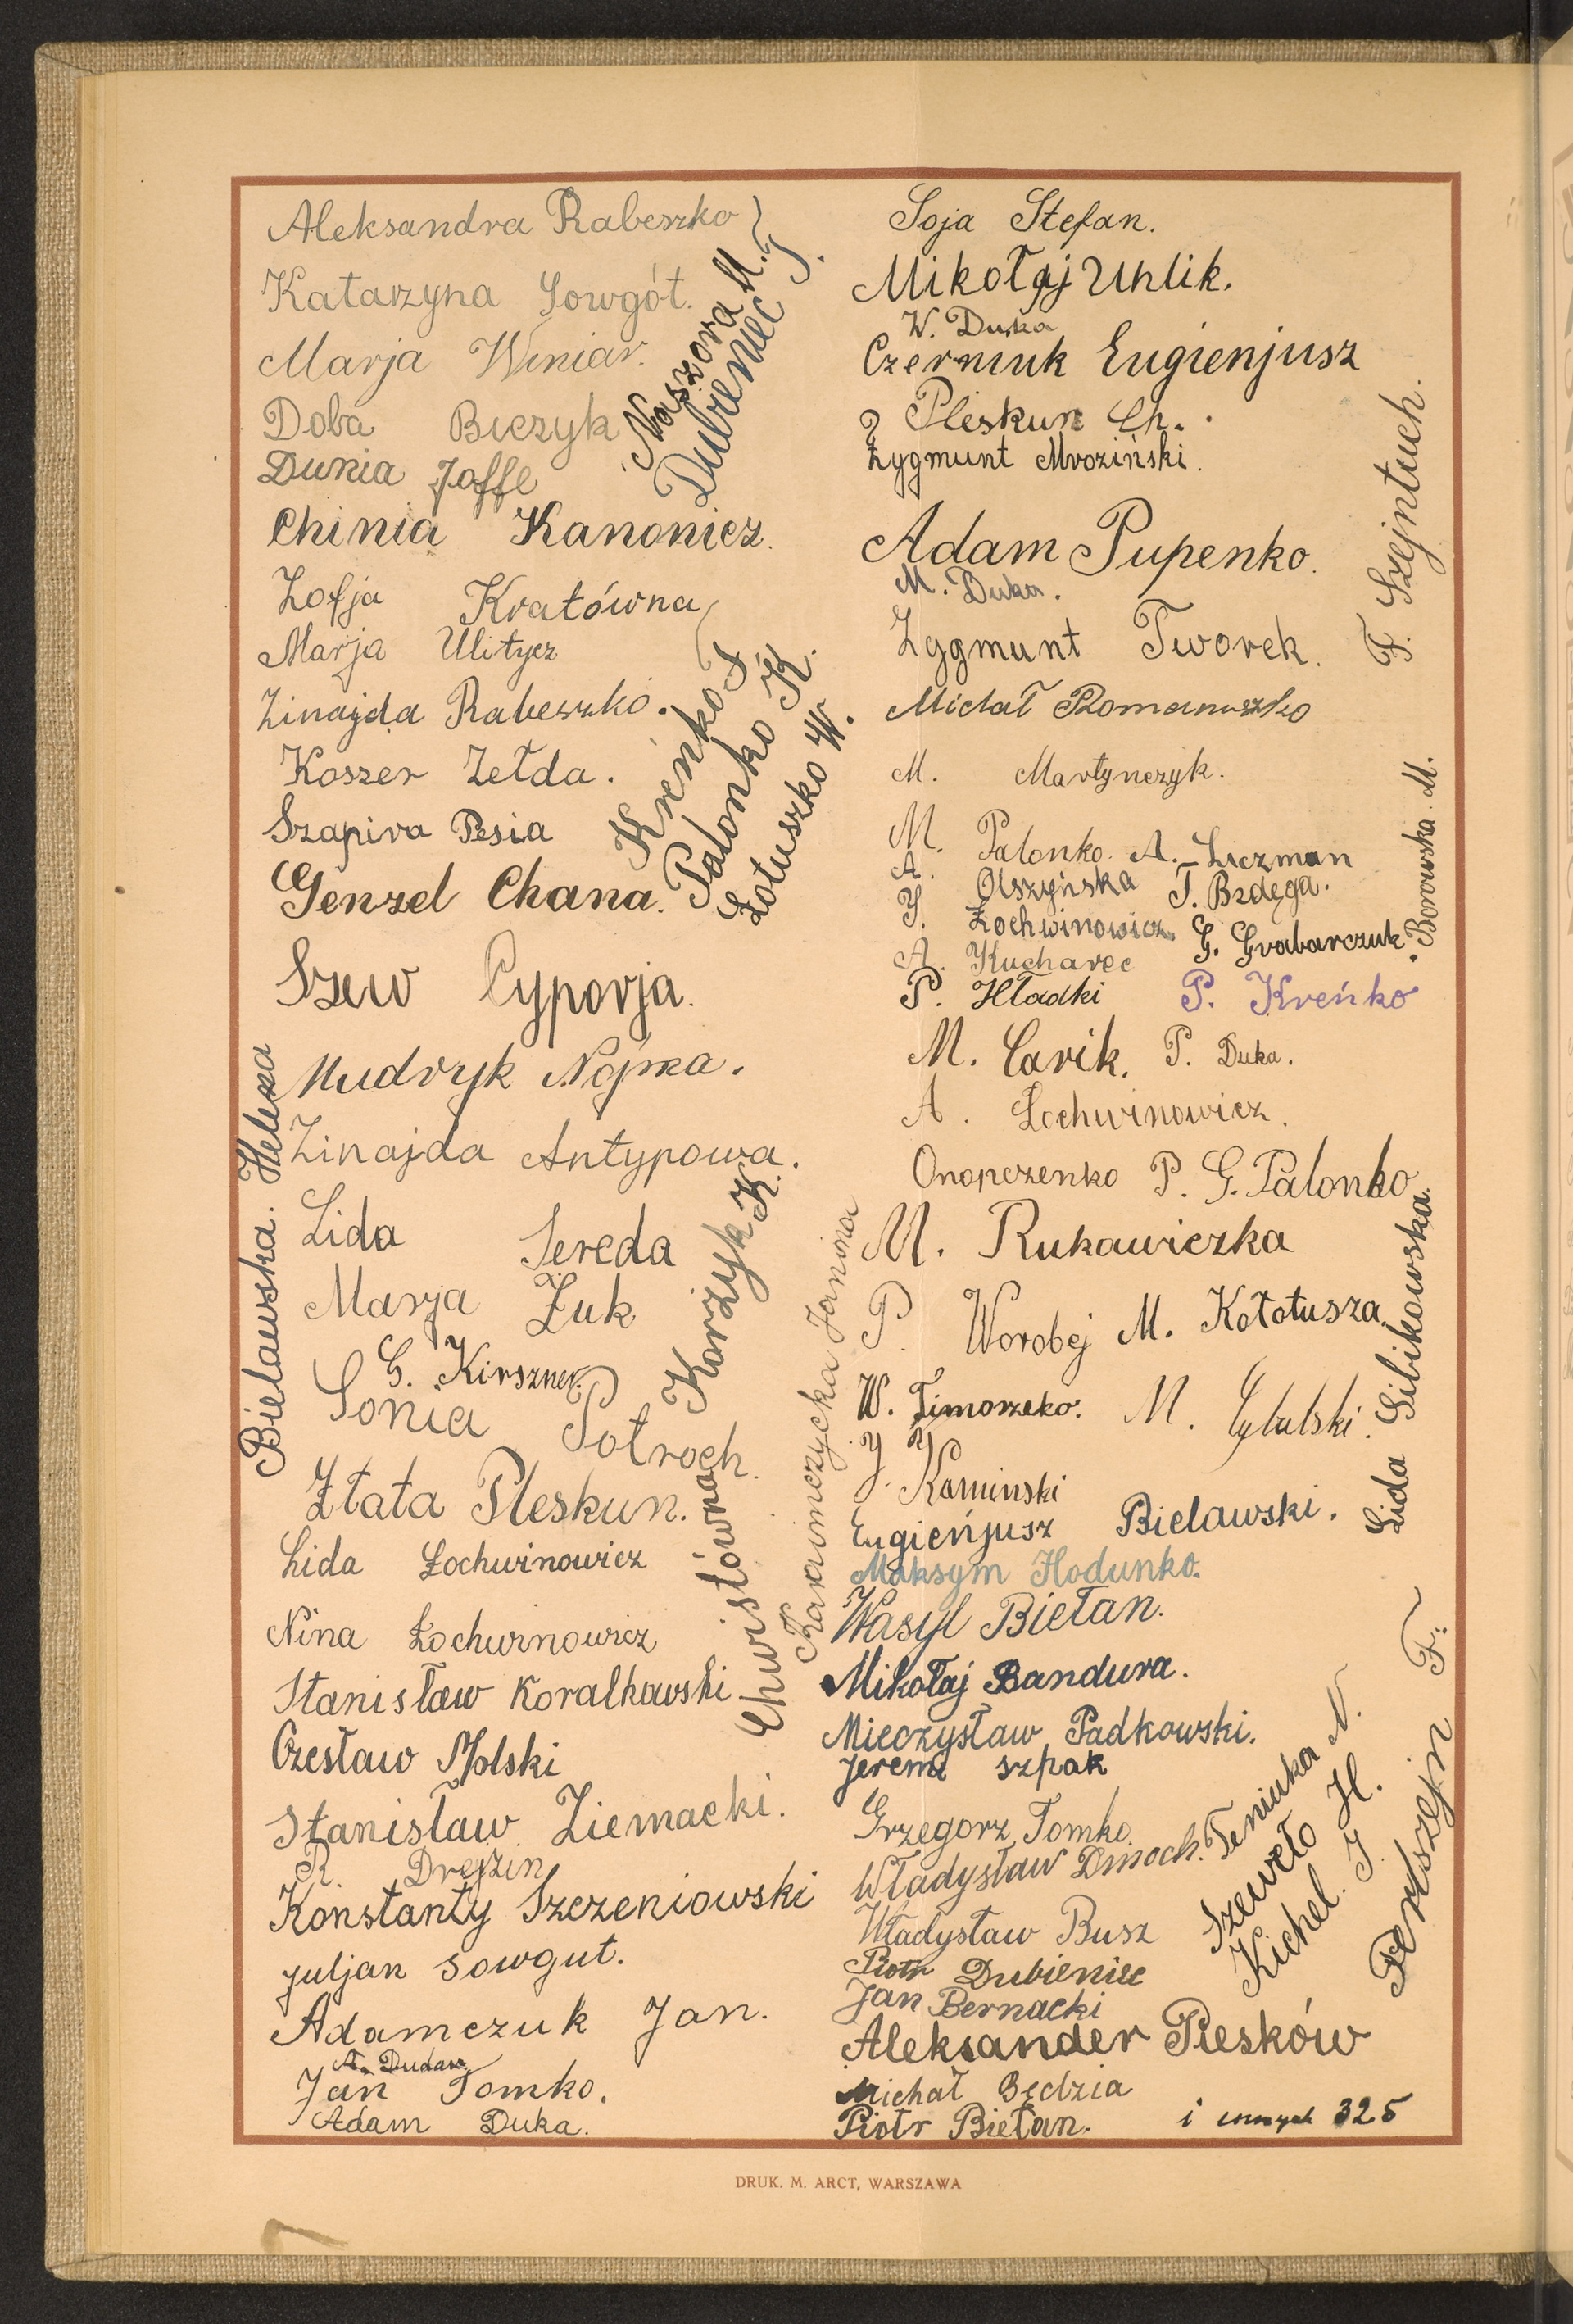 Aleksandra Rabeszko
Katarzyna Sowgót.
Marja Winiar.
Doba Biczyk
Dunia Joffe
Naszora M.
Dubieniec J.
Chinia Kanonicz.
Zofja Kratówna
Marja Ulitycz
Zinajda Rabeszko.
Koszer Zełda.
Szapira Pesia
Genzel Chana.
Kreńko J
Palonko K.
Łotuszko W.
Szew Cyporja.
Mudryk Nojma.
Zinajda Antypowa.
Lida Sereda
Marja Żuk
G. Kirszner.
Sonia Potroch.
Korżyk K.
Bielawska. Helena
Złata Pleskun.
Lida Łochwinowicz
Nina Łochwinowicz
Chwistówna
Karaimczycka Janina
Stanisław Koralkowski
Czesław Molski
Stanisław Ziemacki.
R. Drejzin
Konstanty Szczeniowski
Juljan Sowgut.
Adamczuk Jan.
A. Dudar
Jan Tomko.
Adam Duka.
Soja Stefan.
Mikołaj Uhlik.
W. Duka
Czerniuk Eugienjusz
Pleskun Ch.
Zygmunt Mroziński.
Adam Pupenko.
M. Duka.
Zygmunt Tworek.
F. Szejntuch.
Michał Romanuszko
M. Martynczyk.
M. Palonko. A. Liczman
A. Olszyńska T. Bzdęga.
J. Łochwinowicz G. Grabarczuk.
Borowska. M.
A. Kucharec
P. Hładki P. Kreńko
M. Carik. P. Duka.
A. Łochwinowicz.
Onopczenko P. G. Palonko
M. Rukawiczka
P. Worobej M. Kołotusza.
W. Timoszko. M. Cylulski.
Lida Sibikowska.
J. Kaminski
Eugieńjusz Bielawski.
Maksym Hodunko.
Wasyl Biełan.
Mikołaj Bandura.
Mieczysław Padkowski.
Jeremi szpak
Grzegorz Tomko.
Władysław Dmoch.
Teniuka N.
Szeweło H.
Kichel. J.
Perlsztejn F.
Władysław Busz
Piotr Dubieniec
Jan Bernacki
Aleksander Piesków
Michał Będzia
Piotr Biełan.
i innych 325
DRUK. M. ARCT, WARSZAWA